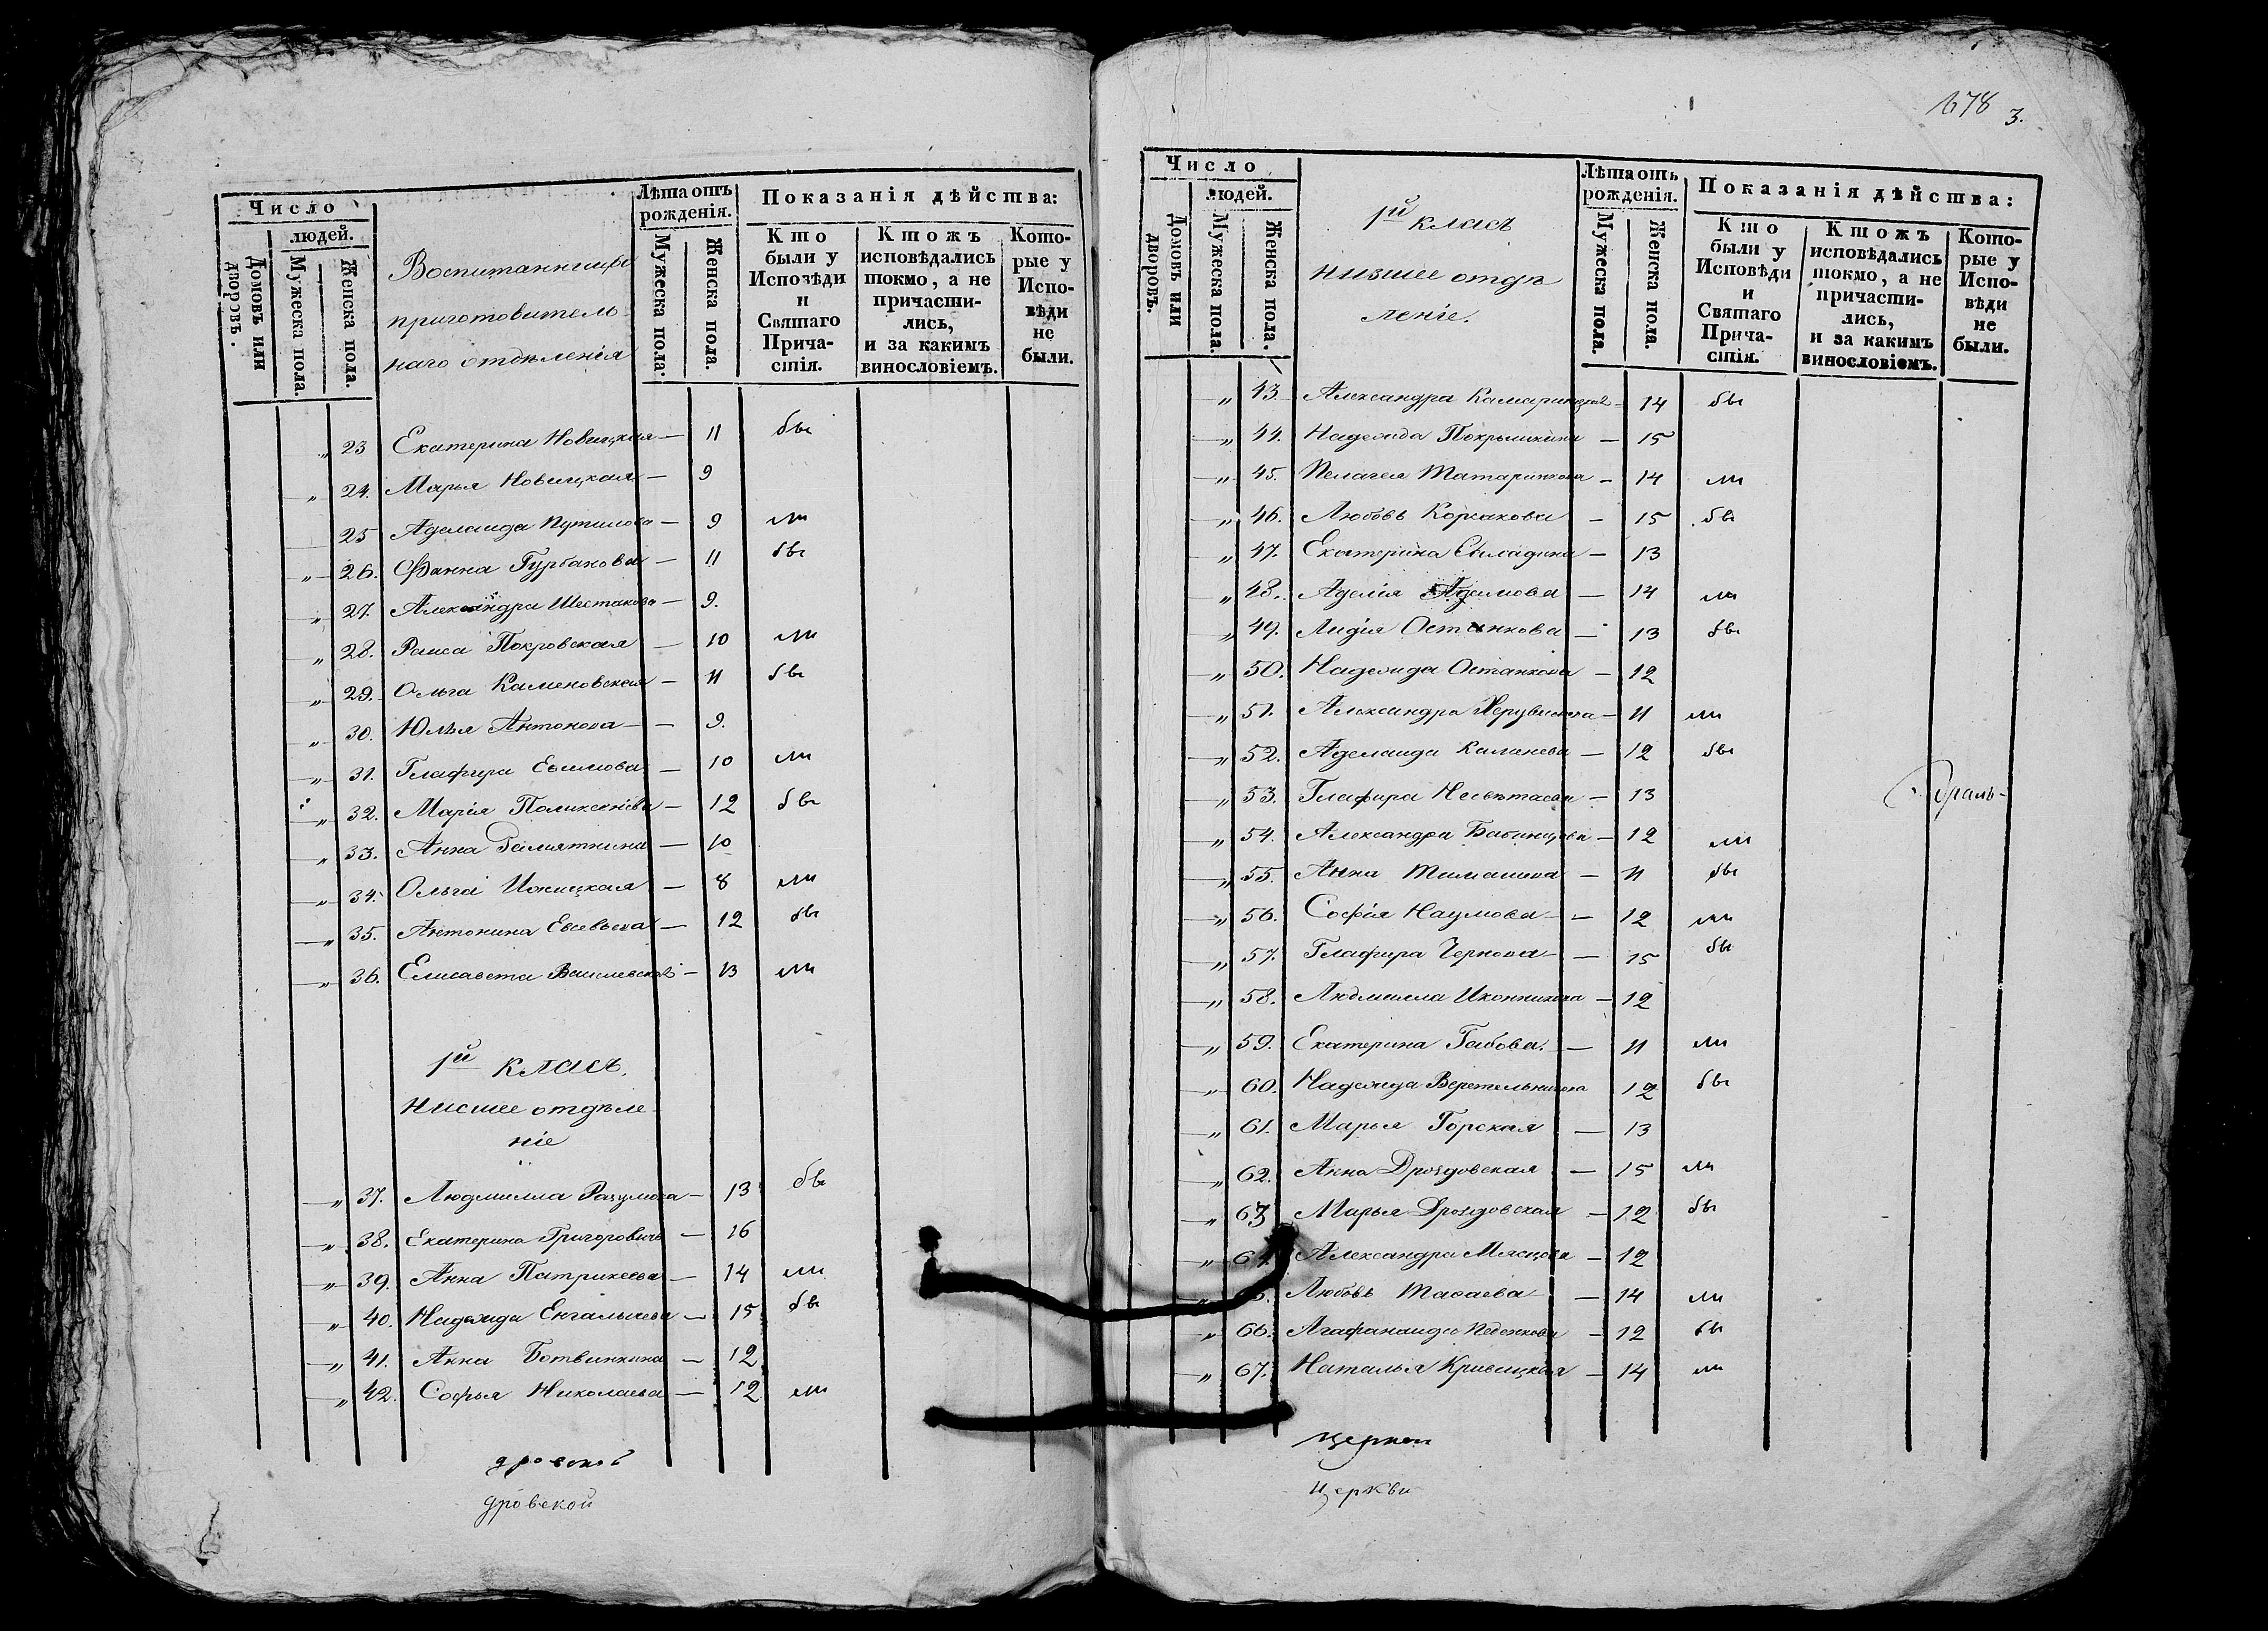 Число
людей.
Домовъ или дворовъ.
Мужеска пола.
Женска пола.
Воспитанницы
приготовитель
наго отдѣленія
Лѣта отъ рожденія.
Мужеска пола.
Женска пола.
Показанія дѣйства:
Кто были у Исповѣди и Святаго Прича-стія.
Ктожъ исповѣдались токмо, а не причасти-лись, и за какимъ винословіемъ.
Кото-рые у Испо-вѣди не были.
„ 23 Екатерина Новицкая — 11 бы
„ 24. Марья Новицкая — 9
25 Аделаида Путилова — 9 ли
„ 26. Фанна Гурбанова — 11 бы
„ 27. Александра Шестакова — 9.
„ 28. Раиса Покровская — 10 ли
„ 29. Ольга Каменовская — 11 бы
„ 30. Юлья Антонова — 9.
„ 31. Глафира — 10 ли
„ 32. Марія — 12 бы
„ 33. Анна — 10
„ 34. Ольга Ижицкая — 8 ли
„ 35. Антонина — 12 бы
„ 36. Елисавета — 13 ли
1й класъ.
Нисшее отдѣле
ніе
„ 37. Людмилла Разумова — 13 бы
„ 38. Екатерина Григоровичь — 16
„ 39. Анна Патрикеева — 14 ли
„ 40. Надежда Енгалычева — 15 бы
„ 41. Анна Ботвинкина — 12
„ 42. Софья Николаева — 12 ли
дровской
дровской
1678 3.
Число
людей.
Домовъ или дворовъ.
Мужеска пола.
Женска пола.
1й класъ
низшее отдѣ
леніе.
Лѣта отъ рожденія.
Мужеска пола.
Женска пола.
Показанія дѣйства:
Кто были у Исповѣди и Святаго Прича-стія.
Ктожъ исповѣдались токмо, а не причасти-лись, и за какимъ винословіемъ.
Кото-рые у Испо-вѣди не были.
„ 43. Александра — 14 бы
„ 44. Надежда Покрышкина — 15
„ 45. Пелагея Татаринова — 14 ли
„ 46. Любовь Корсакова — 15 бы
„ 47. Екатерина — 13
„ 48. Аделія — 14 ли
„ 49. Лидія Останкова — 13 бы
„ 50. Надежда Останкова — 12
„ 51. Александра — 11 ли
„ 52. Аделаида — 12 бы
„ 53. Глафира — 13
„ 54. Александра Бабинцева — 12 ли
„ 55. Анна Тимашева — 11 бы
„ 56. Софія Наумова — 12 ли
„ 57. Глафира Чернова — 15 бы
„ 58. Людмилла Иконникова — 12
„ 59. Екатерина Габова. — 11 ли
„ 60. Надежда Веретельникова 12 бы
„ 61. Марья Горская — 13
„ 62. Анна Дроздовская — 15 ли
„ 63 Марья Дроздовская — 12 бы
„ 64. Александра Мясцова — 12
Любовь Тасаева — 14 ли
„ 66. — 12 бы
„ 67. Наталья Кривицкая — 14 ли
церкви
церкви